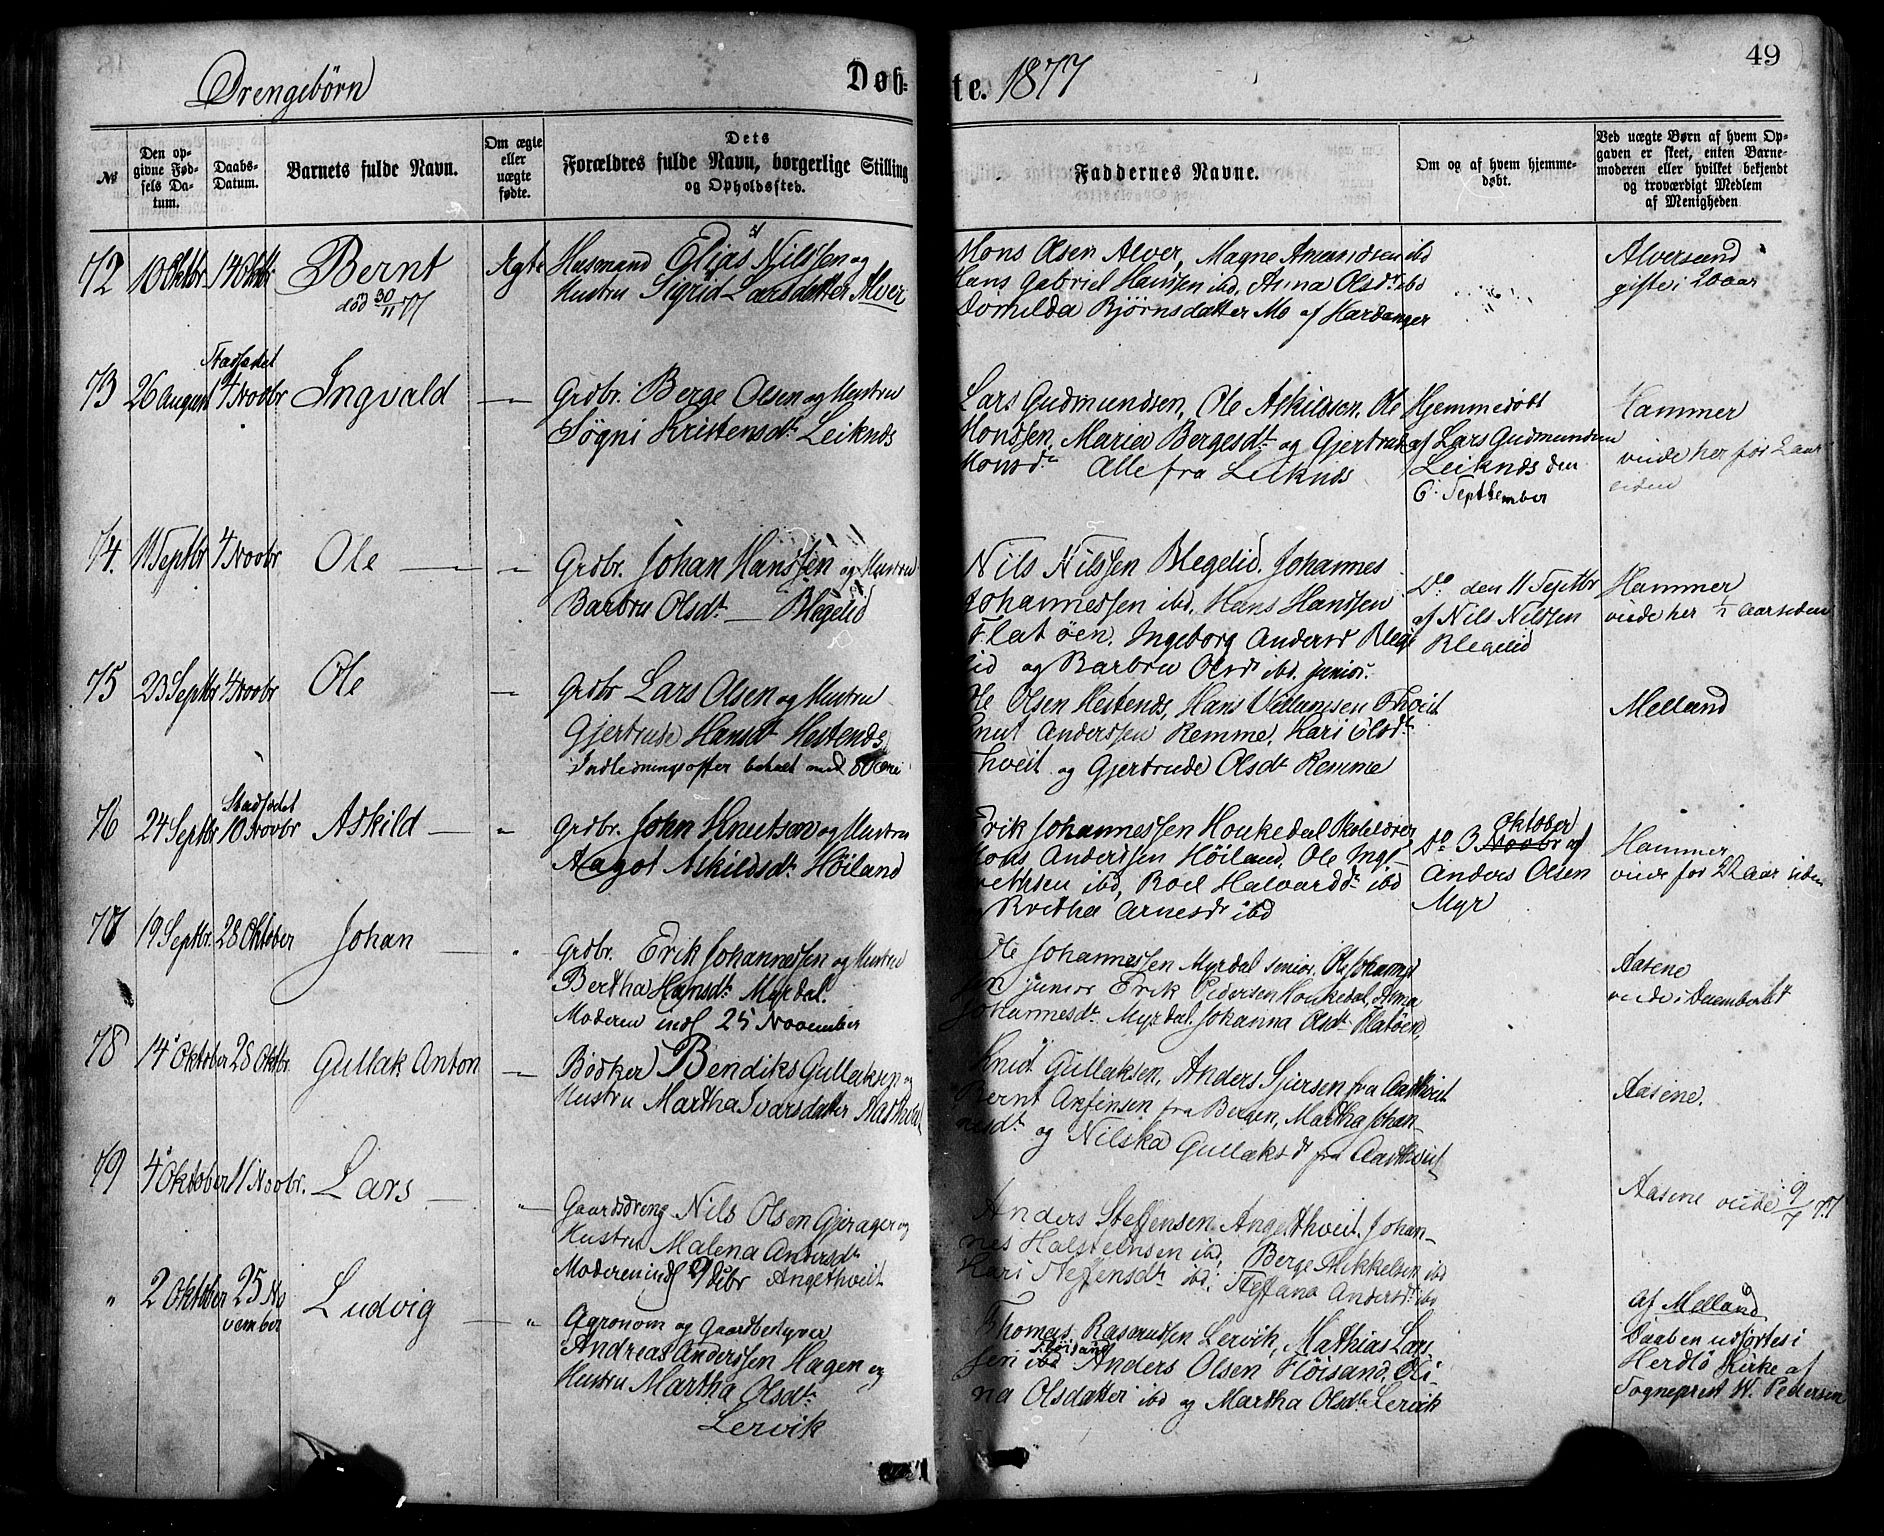 Drengebørn
Døb-
te. 1877
49
№
Den op-
givne Fød-
sels Da-
tum.
Daabs-
Datum.
Barnets fulde Navn.
Om ægte
eller
uægte
fødte.
Dets
Forældres fulde Navn, borgerlige Stilling
og Opholdssted.
Faddernes Navne.
Om og af hvem hjemme-
døbt.
Ved uægte Børn af hvem Op-
gaven er skeet, enten Barne-
moderen eller hvilket bekjendt
og troværdigt Medlem
af Menigheden
72 10 Oktbr 14 Oktbr Bernt
død 30/11 77
Ægte
Husmand Elias Nilssen og
Hustru Sigrid Larsdatter Alver
Mons Olsen Alver, Magne Amundsen ibd
Hans Gabriel Hanssen ibd, Anna Olsdr ibd
Domilda Bjørnsdatter Mo af Hardanger
Alversund
gifte i 20 aar
73 26 August Stadfædet 4 Novbr Ingvald —
Grdbr. Berge Olsen og Hustru
Søgni Kristensdt. Leiknes
Lars Gudmundsen, Ole Askildsen, Ole
Monssen, Maria Bergesdt. og Gjertrud
Monsd. Alle fra Leiknes
Hjemmedøbt
af Lars Gudmundsen
Leiknes den
6. September
Hammer
viede her for 2 aar
siden
74. 11 Septbr 4 Novbr Ole — „
Grdbr. Johan Hanssen og Hustru
Barbru Olsdt. — Blegelid
Nils Nilssen Blegelid, Johannes
Johannessen ibd, Hans Hanssen
Flatøen, Ingeborg Andersd Blege
lid og Barbru Olsdr ibd. junior.
Do. den 11 Septbr
af Nils Nilssen
Blegelid
Hammer
viede her 1/2 aar siden
75 23 Septbr 4 Novbr Ole —
Grdbr Lars Olsen og Hustru
Gjertrude Hansdt Hestenes
Indledningsoffer betalt med 80 øre
Ole Olsen Hestenes, Hans Thveit
Knut Anderssen Remme, Kari Olsdt.
Thveit og Gjertrude Olsdt. Remme
Melland
76 24 Septbr Stadfædet 10 Novbr Askild — „
Grdbr. John Knutson og Hustru
Aagot Askildsdt. Høiland
Erik Johannessen Houkedal Skolelærer
Mons Anderssen Høiland, Ole Inge-
brethsen ibd, Roel Halvardd. ibd
Brita Arnesdr ibd
Do 3 Oktober Novbr af
Anders Olsen
Myr
Hammer
viede for 22 Aar siden
77 19 Septbr. 28 Oktober Johan — „
Grdbr. Erik Johannessen og Hustru
Bertha Hansdt. Myrdal.
Moderen indl 25 November
Ole Johannessen Myrdal senior. Ole Johannes
sen junior Erik Pedersen Houkedal, Anna
Johannesdt. Myrdal. Johanna Olsdt. Flatøen,
Aasene
viede i
78 14 Oktober 28 Oktbr. Gullak Anton —
Bødker Bendiks Gullaksen og
Hustru Martha Ivarsdatter Aasthveit
Knut Gullaksen, Anders Sjursen fra Aasthveit
Bernt Anfinsen fra Bergen, Martha Johan-
nesdt. og Nilska Gullaksdt fra Aasthveit
Aasene.
79 4 Oktober 11 Novbr. Lars — „
Gaardsdreng Nils Olsen Gjerager og
Hustru Malena Andersdt.
Moderen indl 9 Debr Angelthveit
Anders Steffensen, Angelthveit. Johan-
nes Halsteinsen ibd, Berge Mikkelsen ibd
Kari Steffensdt. ibd: Steffana Andersdt ibd
Aasene viede 9/7 77
„ 2 Oktober 25 No
vember
Ludvig — „
Agronom og Gaardbestyrer
Andreas Anderssen Hagen og
Hustru Martha Olsdt.
Lervik
Thomas Rasmussen Lervik, Mathias Lars
sen ibd Fløisand Anders Olsen Fløisand, Oli
na Olsdatter ibd og Martha Olsdt. Lervik
Af Melland
Daaben udførtes i
Herdlø Kirke af
Sogneprest W. Pedersen